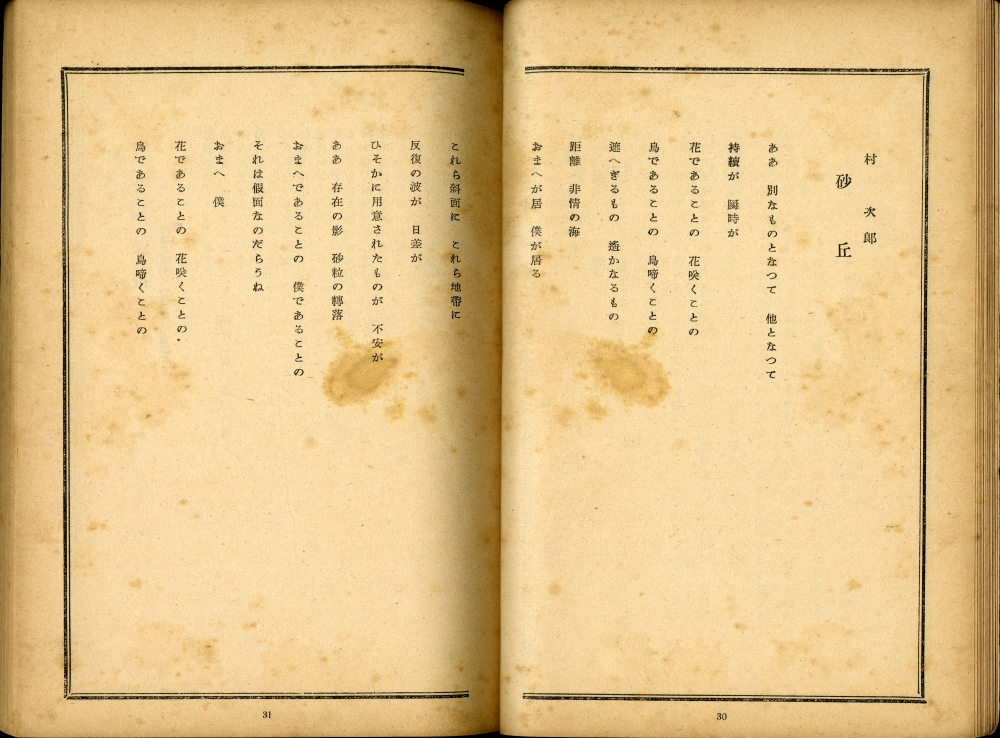 村 次郎
砂丘
ああ 別なものとなつて 他となつて
持續が 瞬時が
花であることの 花咲くことの
鳥であることの 鳥啼くことの
遮へぎるもの 遙かなるもの
距離 非情の海
おまへが居 僕が居る
30
これら斜面に これら地帶に
反復の波が 日差が
ひそかに用意されたものが 不安が
ああ 存在の影 砂粒の轉落
おまへであることの 僕であることの
それは假面なのだらうね
おまへ 僕
花であることの 花咲くことの
鳥であることの 鳥啼くことの
31